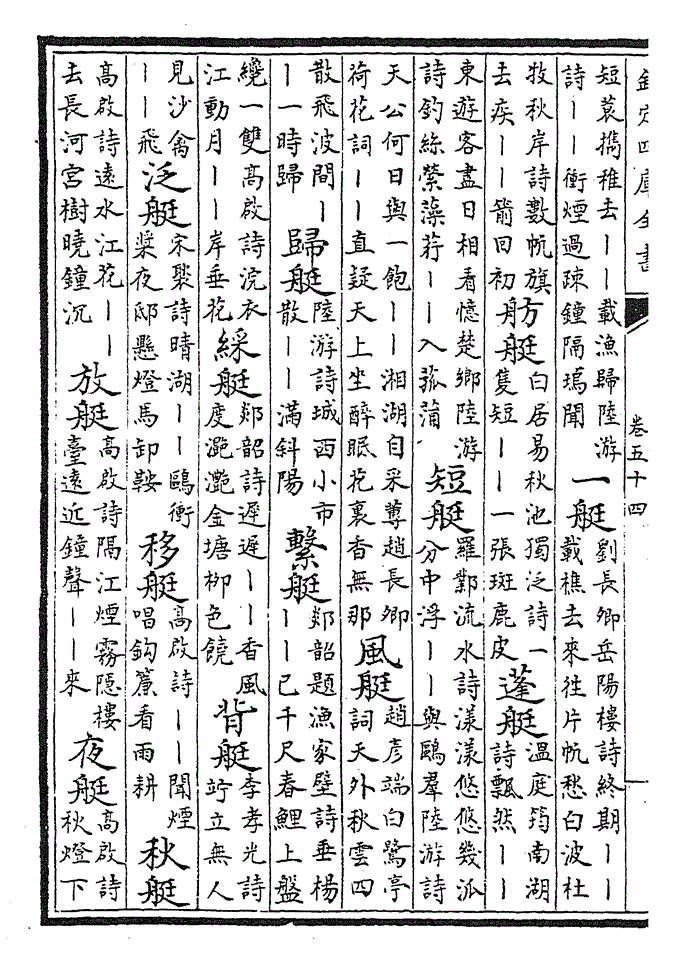 欽定四庫全書 卷五十四
短蓑擕稚去丨丨載漁歸陸游詩丨丨衝煙過疎鐘隔塢聞 一艇 劉長卿岳陽樓詩終期丨丨載樵去來徃片帆愁白波杜
牧秋岸詩數帆旗去疾丨丨箭回初 舫艇 白居易秋池獨泛詩一隻短丨丨一張斑鹿皮 蓬艇 温庭筠南湖詩飄然丨丨
東遊客盡日相看憶楚鄉陸游詩釣絲縈藻荇丨丨入菰蒲 短艇 羅鄴流水詩漾漾悠悠幾派分中浮丨丨與鷗羣陸游詩
天公何日與一飽丨丨湘湖自采蓴趙長卿荷花詞丨丨直疑天上坐醉眠花裏香無那 風艇 趙彦端白鷺亭詞天外秋雲四
散飛波間丨丨一時歸 歸艇 陸游詩城西小市散丨丨滿斜陽 繫艇 郯韶題漁家壁詩垂楊丨丨已千尺春鯉上盤
纔一雙高啟詩浣衣江動月丨丨岸垂花 綵艇 郯韶詩遲遲丨丨香風度灔灔金塘栁色饒 背艇 李孝光詩竚立無人
見沙禽丨丨飛 泛艇 宋褧詩晴湖丨丨鷗衝槳夜邸懸燈馬卸鞍 移艇 高啟詩丨丨聞煙唱鈎簾看雨耕 秋艇
高啟詩遠水江花丨丨去長河宫樹曉鐘沉 放艇 高啟詩隔江煙霧隱樓臺遠近鐘聲丨丨來 夜艇 高啟詩秋燈下